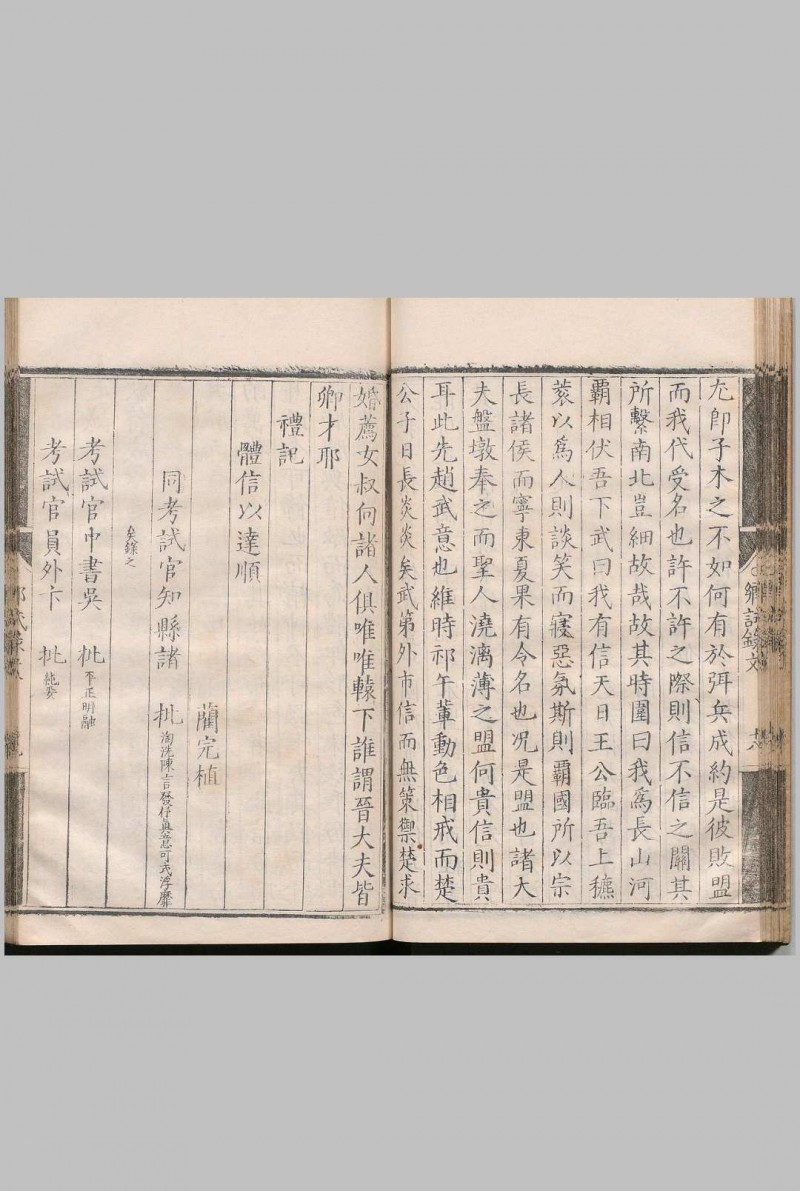 尤卽子木之不如何有於弭兵成約是彼敗盟
而我代受名也許不許之際則信不信之關其
所繫南北豈細故哉故其時圍曰我爲長山河
霸相伏吾下武曰我有信天日王公臨吾上穮
蓘以爲人則談笑而寑惡氛斯則霸國所以宗
長諸侯而寧東夏果有令名也况是盟也諸大
夫盤墩奉之而聖人澆漓薄之盟何貴信則貴
耳此先趙武意也維時祁午輩動色相戒而楚
公子日長炎炎矣武第外市信而無策禦楚求
婚薦女叔向諸人俱唯唯轅下誰謂晉大夫皆
卿才耶
禮記
體信以達順
藺完植
同考試官知縣諸 批 淘洗陳言發抒眞意可式浮靡
矣錄之
考試官中書吳 批 平正明融
考試官員外卞 批 純瑩
鄉試錄文